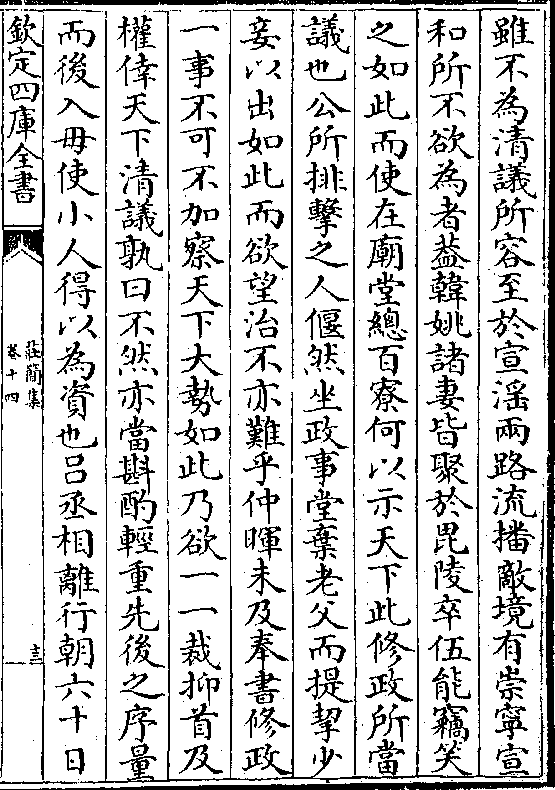 雖不為清議所容至於宣淫兩路流播敵境有崇寧宣
和所不欲為者葢韓姚諸妻皆聚於毘陵卒伍能竊笑
之如此而使在廟堂總百寮何以示天下此修政所當
議也公所排擊之人偃然坐政事堂棄老父而提挈少
妾以出如此而欲望治不亦難乎仲暉未及奉書修政
一事不可不加察天下大勢如此乃欲一一裁抑首及
權倖天下清議孰曰不然亦當斟酌輕重先後之序量
而後入毋使小人得以為資也吕丞相離行朝六十日
欽定四庫全書
莊簡集
卷十四
十三